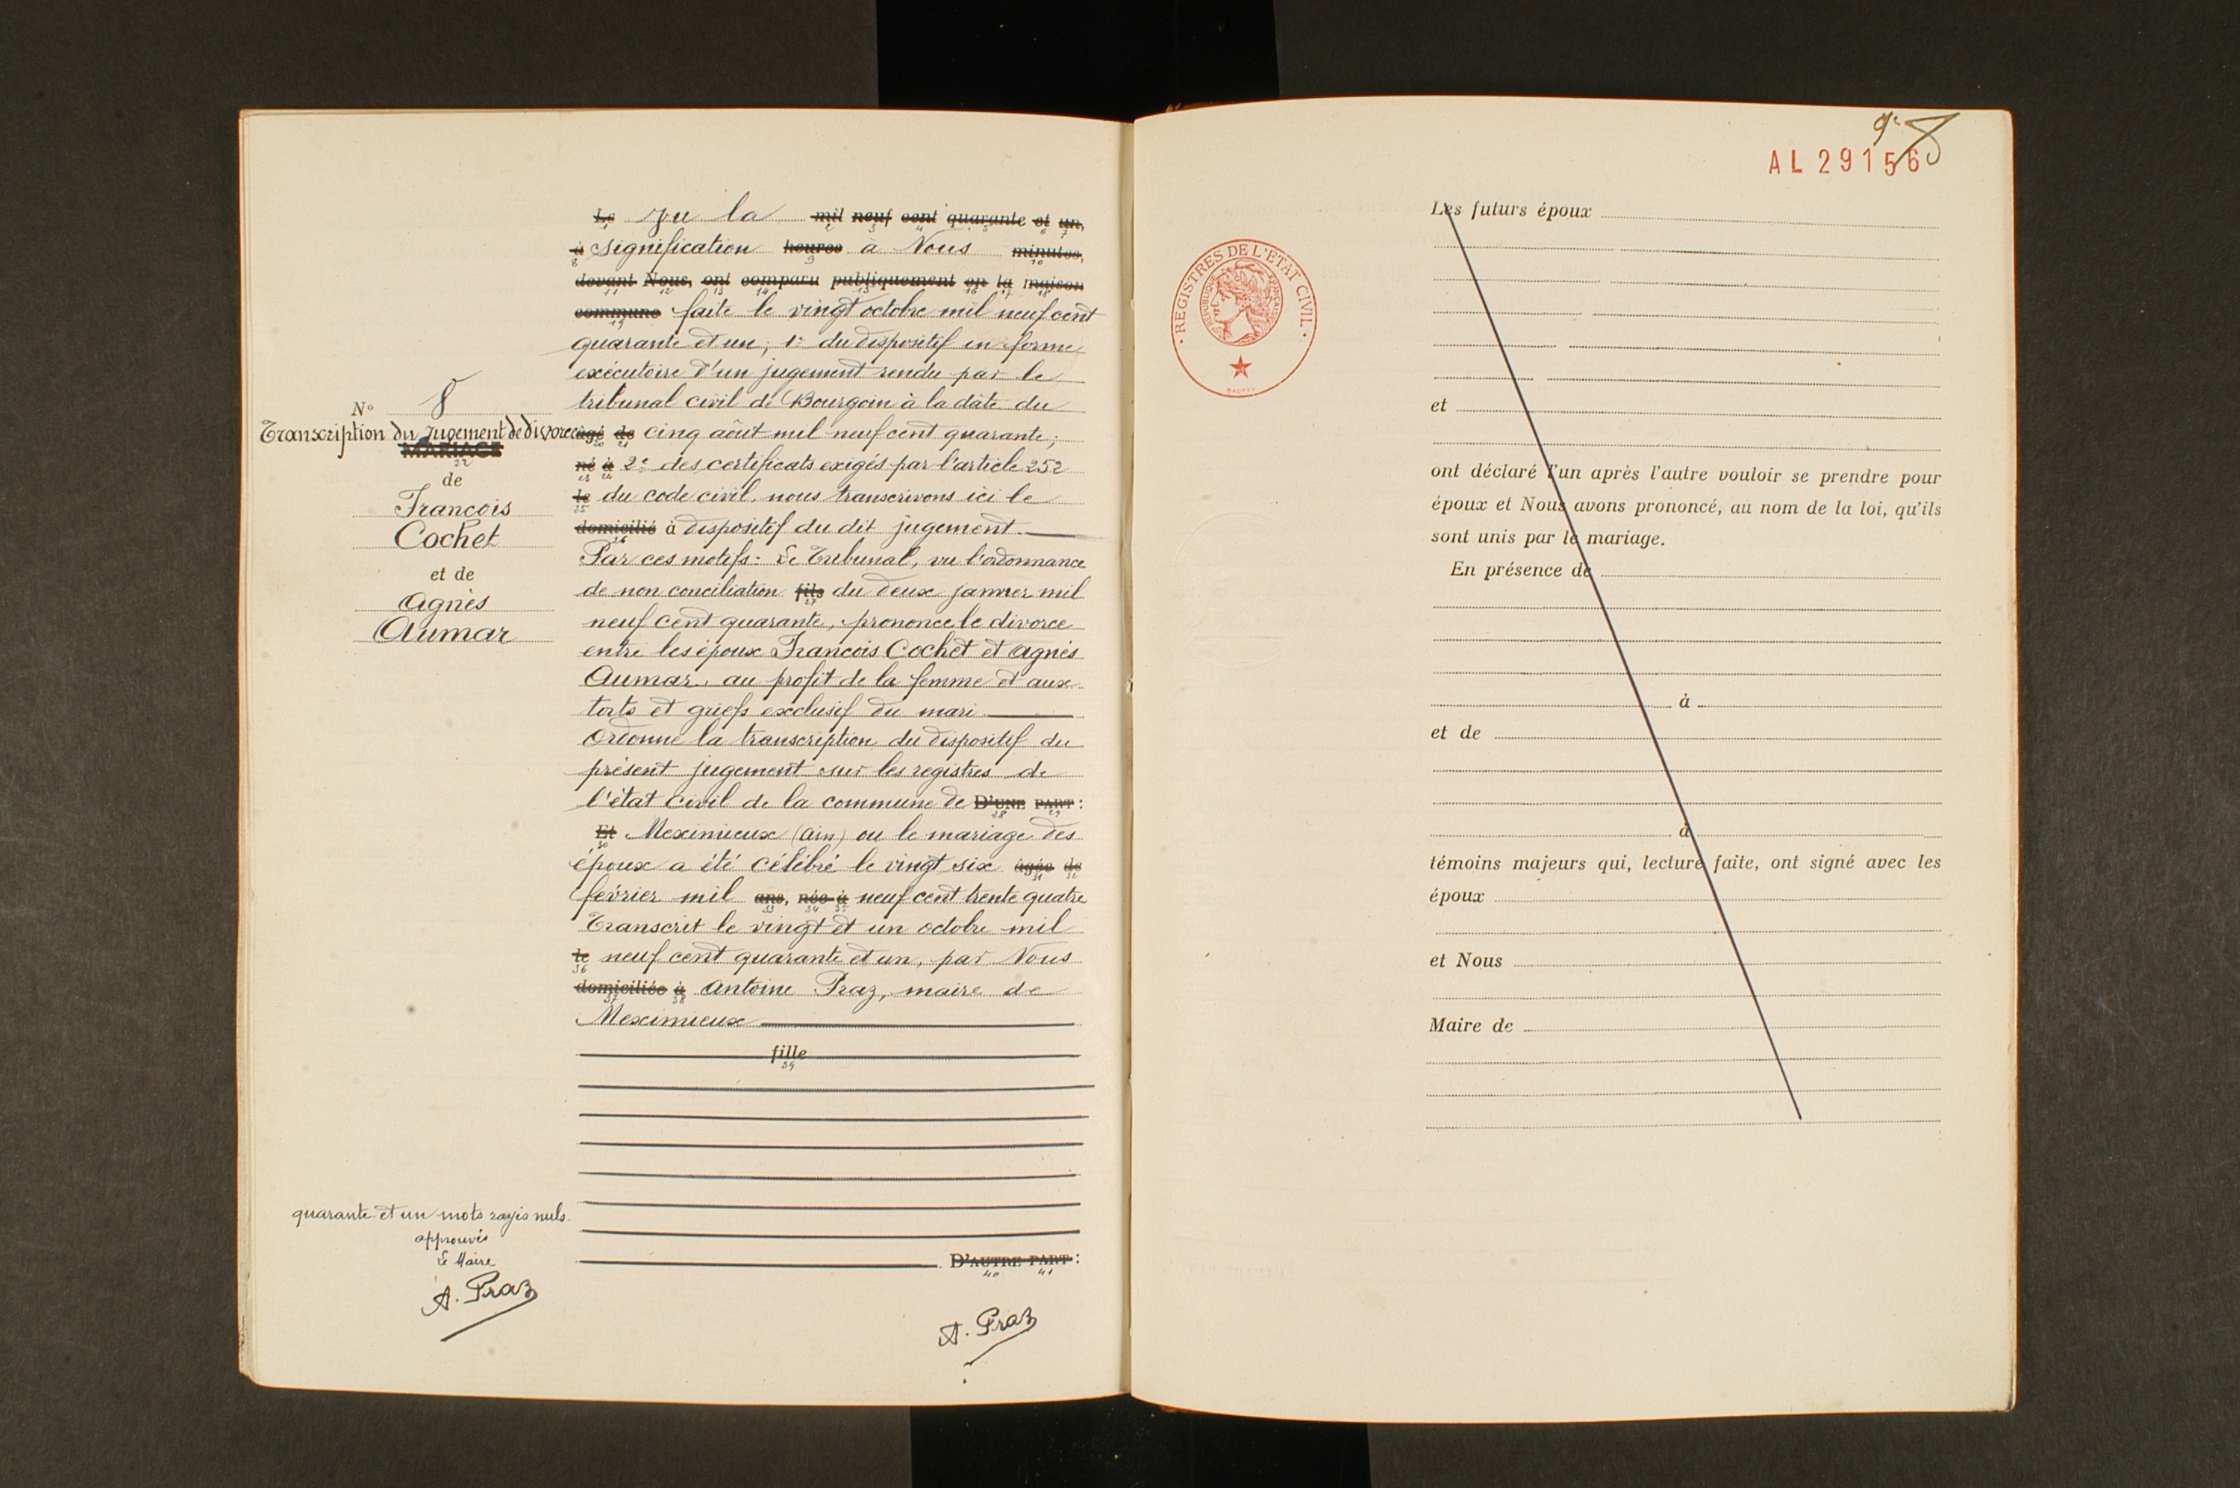 N° 8
Transcription du Jugement de divorce
MARIAGE
22
de
François
Cochet
et de
Agnès
Aumar
quarante et un mots rayés nuls
approuvés
Le Maire
A. Praz
Le Vu la mil neuf cent quarante et un,
à signification heures à Nous minutes,
devant Nous, ont comparu publiquement en la maison
commune faite le vingt octobre mil neuf cent
quarante et un, 1° du dispositif en forme
exécutoire d'un jugement rendu par le
tribunal civil de Bourgoin à la date du
âgé de cinq août mil neuf cent quarante;
né à 2° des certificats exigés par l'article 252
le du code civil, nous transcrivons ici le
domicilié à dispositif du dit jugement.
Par ces motifs: Le Tribunal, vu l'ordonnance
de non conciliation fils du deux janvier mil
neuf cent quarante, prononce le divorce
entre les époux François Cochet et Agnès
Aumar, au profit de la femme et aux
torts et griefs exclusif du mari
Ordonne la transcription du dispositif du
présent jugement sur les registres de
l'état civil de la commune de D'UNE PART:
Et Meximieux (Ain) ou le mariage des
époux a été célébré le vingt six âgée de
février mil ans, née à neuf cent trente quatre
Transcrit le vingt et un octobre mil
le neuf cent quarante et un, par Nous
domiciliée à Antoine Praz, maire de
Meximieux
fille
39
D'AUTRE PART:
40 41
A. Praz
9e 8
AL 29156
REGISTRES DE L'ETAT CIVIL
Les futurs époux
et
ont déclaré l'un après l'autre vouloir se prendre pour
époux et Nous avons prononcé, au nom de la loi, qu'ils
sont unis par le mariage.
En présence de
à
et de
à
témoins majeurs qui, lecture faite, ont signé avec les
époux
et Nous
Maire de